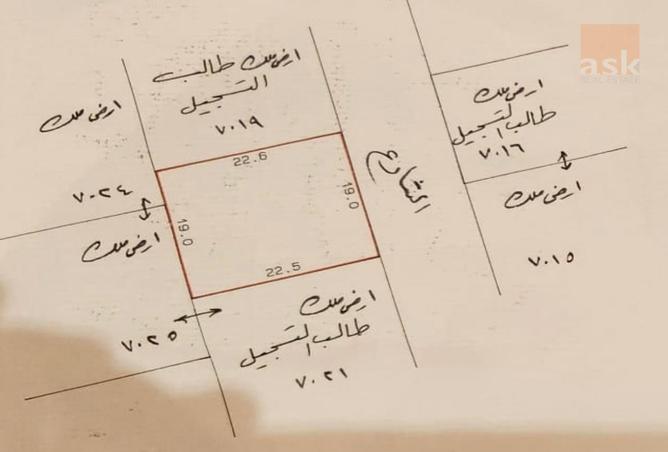 ask
REAL ESTATE
ارض ملك طالب
التسجيل
٧٠١٩
ارض ملك
٧٠٢٤
ارض ملك
طالب التسجيل
٧٠١٦
ارض ملك
٧٠١٥
الشارع
22.6
19.0
19.0
22.5
ارض ملك
٧٠٢٥
ارض ملك
طالب التسجيل
٧٠٢١